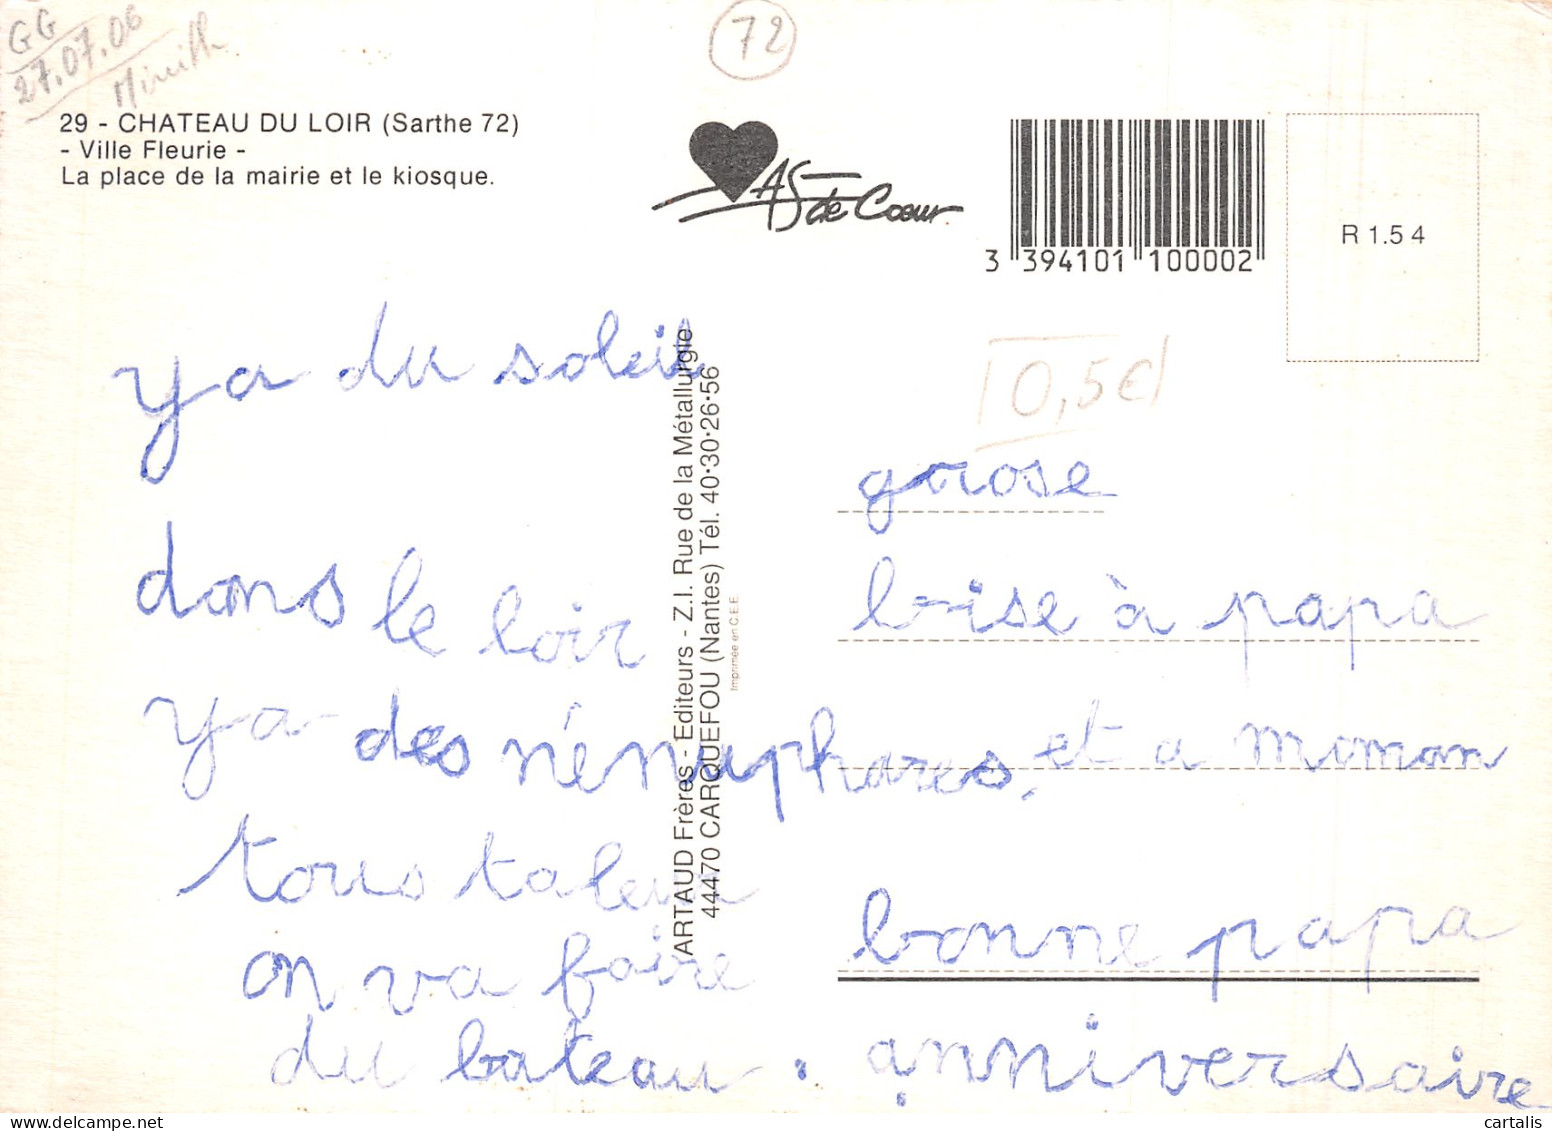 GG
27.07.06
72
29 - CHATEAU DU LOIR (Sarthe 72)
- Ville Fleurie -
La place de la mairie et le kiosque.
AS de Cœur
3 394101 100002
R 1.5 4
0,5€
ARTAUD Frères - Editeurs - Z.I. Rue de la Métallurgie
44470 CARQUEFOU (Nantes) Tél. 40·30·26·56
Imprimée en C.E.E.
ya du soleil
dans le loir
ya des nénuphares.
tous taleur
on va faire
du bateau.
grose
bise à papa
et a maman
bonne papa
anniversaire
cartalis